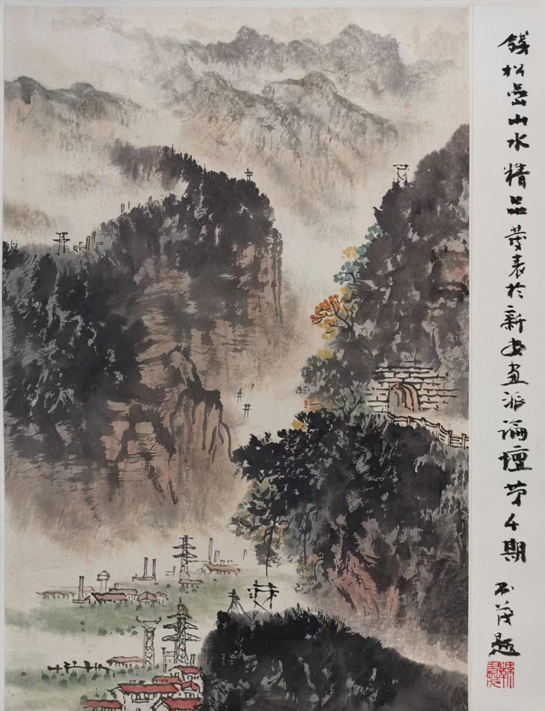 钱松嵒山水精品发表于新安画派论坛第4期 石茂题